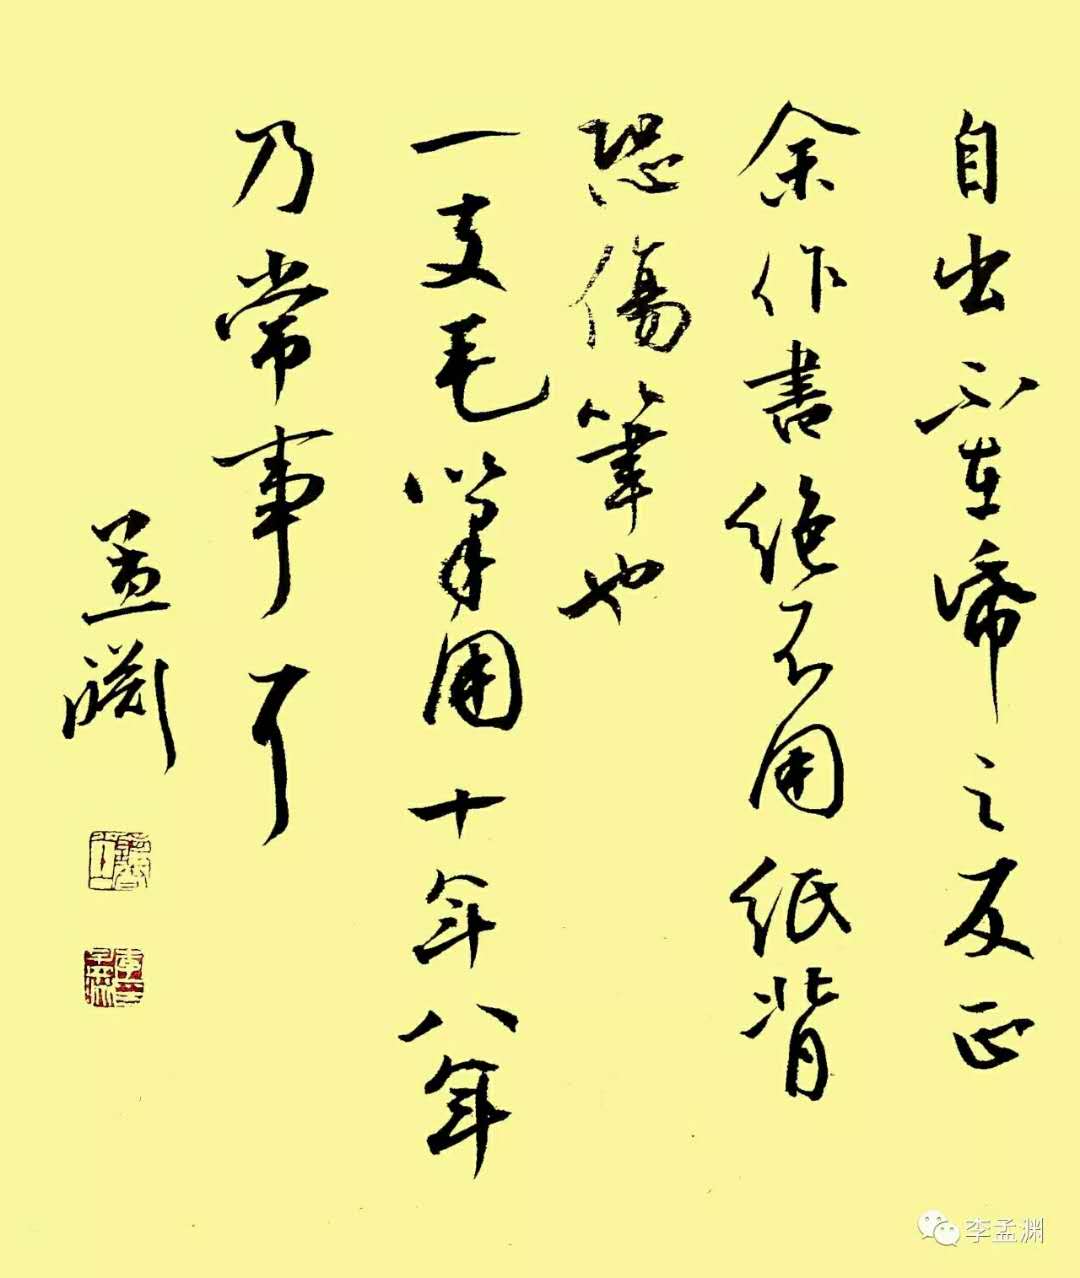 自出不在帋之反正
余作書絕不用紙背
恐傷筆也
一支毛筆用十年八年
乃常事耳
孟渊
李孟渊